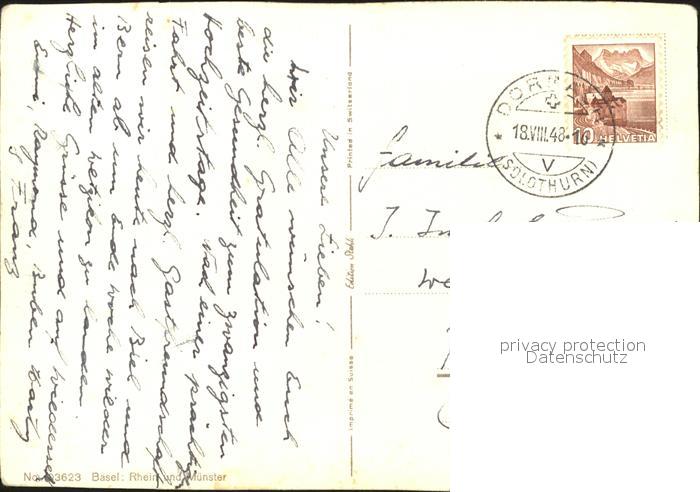 Unsere Lieben!
Wir Alle wünschen Euch
die herzl. Gratulation und
beste Gesundheit zum zwanzigsten
Hochzeitstage. Nach einer prächtigen
Fahrt und herzl. Gastfreundschaft
reisen wir heute nach Biel und
Bern ab um Ende Woche wieder
im alten zu landen.
Herzliche Grüsse und auf Wiedersehn
Raymond,
& Franz
No. 3623 Basel: Rhein und Münster
Printed in Switzerland
Edition Stehli
Imprimé en Suisse
DORNACH
18.VIII.48-10
V
(SOLOTHURN)
10 HELVETIA
Familie
J.
privacy protection
Datenschutz